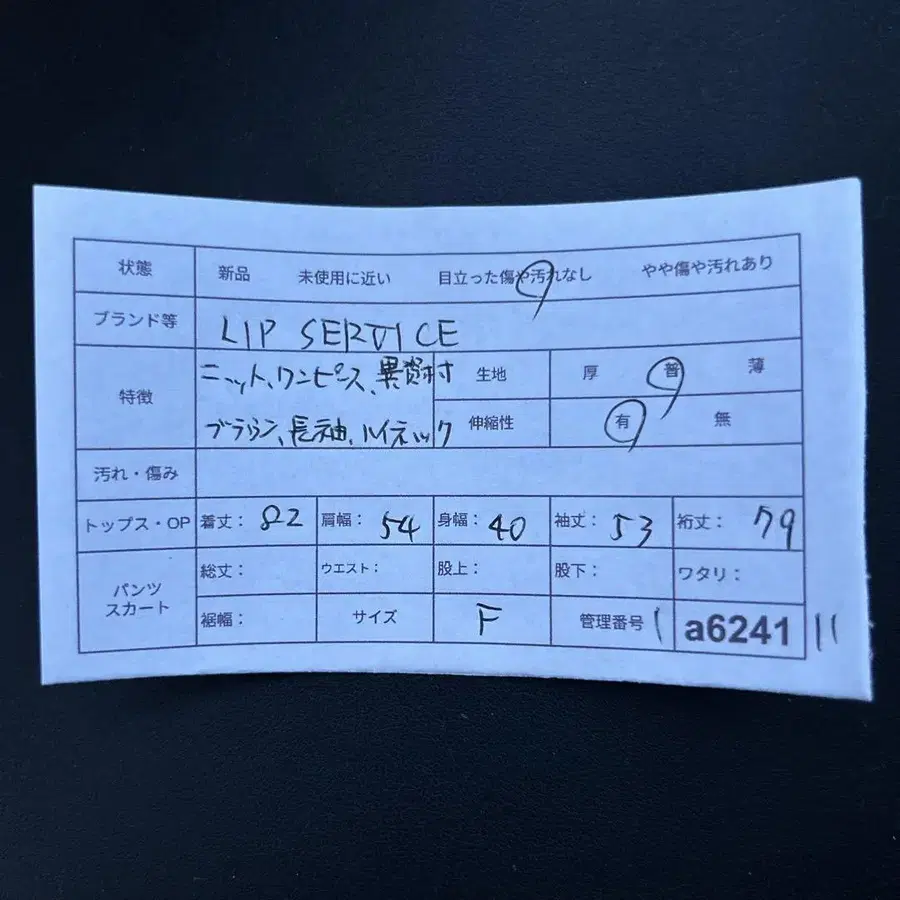 状態 新品 未使用に近い 目立った傷や汚れなし やや傷や汚れあり
ブランド等 LIP SERVICE
特徴 ニット、ワンピース、異資材 生地 厚 普 薄
ブラウン、長袖、ハイネック 伸縮性 有 無
汚れ・傷み
トップス・OP 着丈: 82 肩幅: 54 身幅: 40 袖丈: 53 裄丈: 79
パンツ スカート 総丈: ウエスト: 股上: 股下: ワタリ:
裾幅: サイズ F 管理番号 1 a6241 11